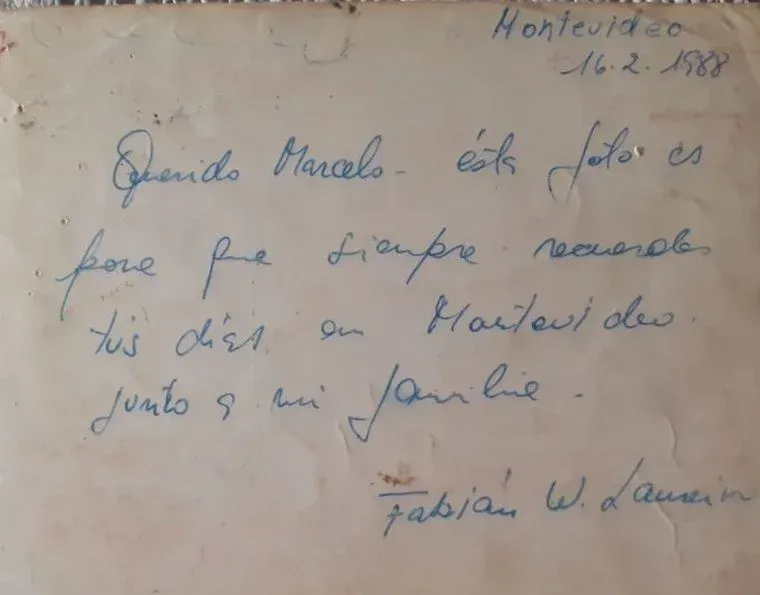 Montevideo
16.2.1988
Querido Marcelo - ésta foto es
para que siempre recuerdes
tus días en Montevideo.
junto a mi familia.
Fabián W.